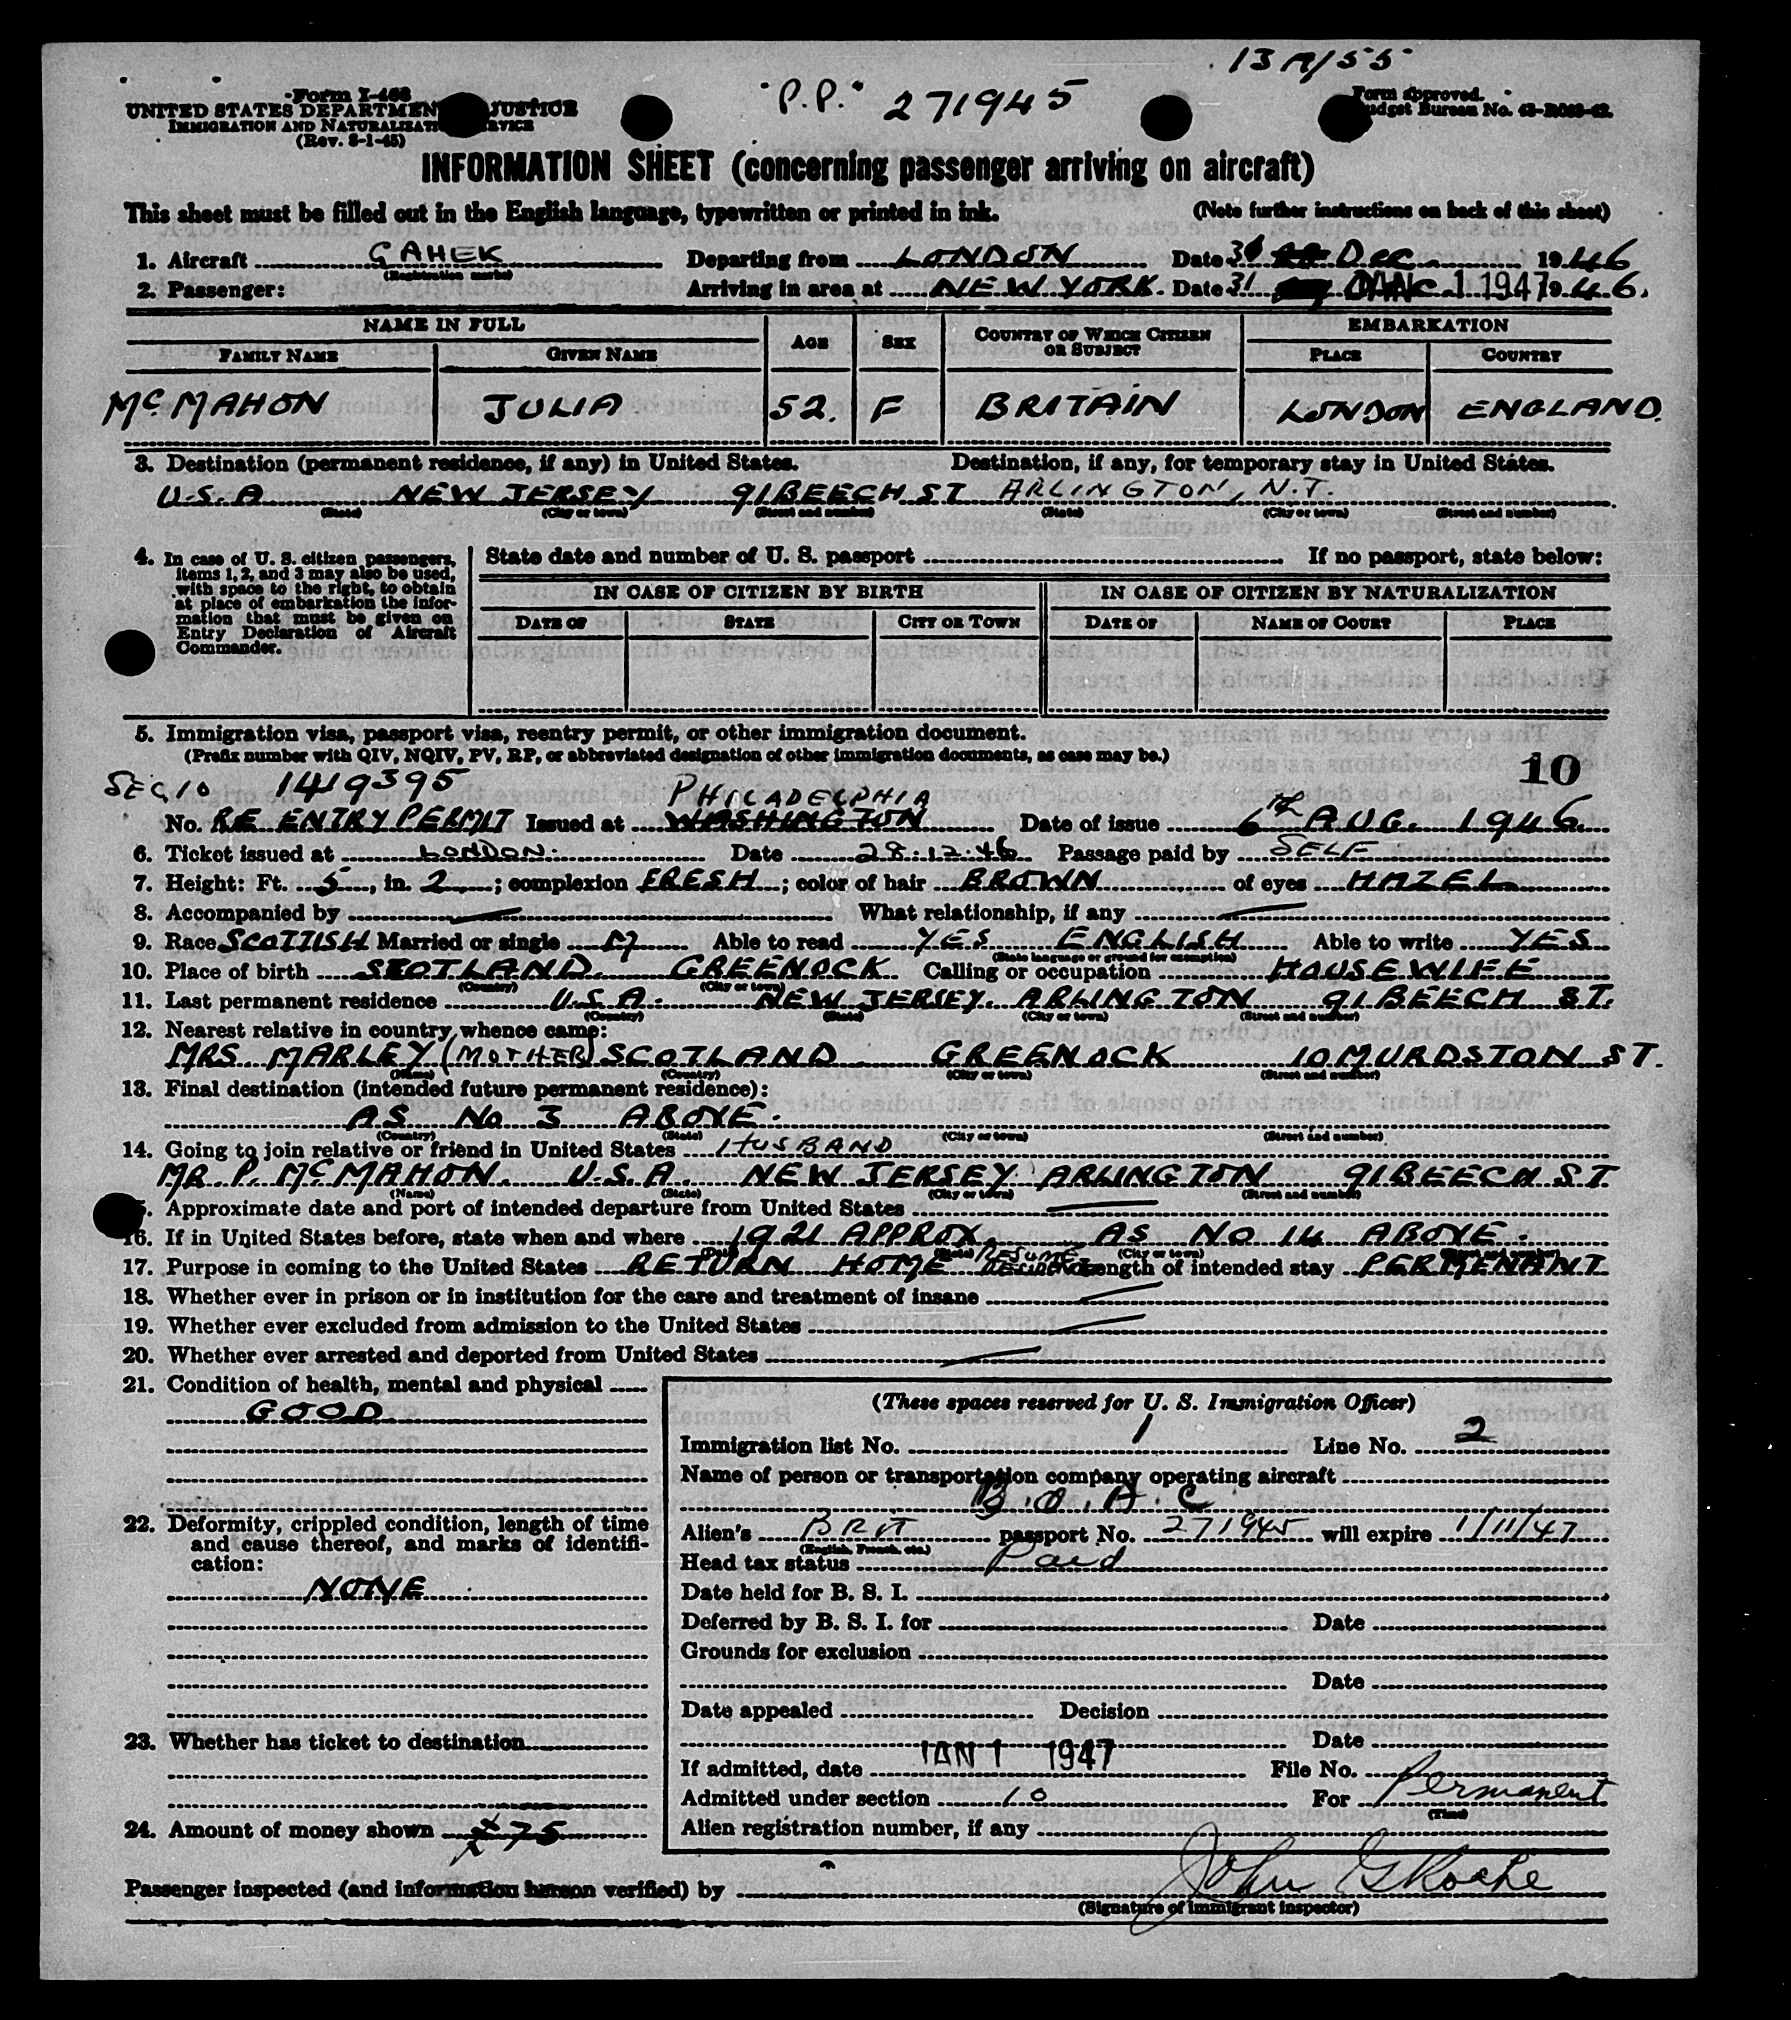 13 A/55
"P.P." 271945
Form I-466
UNITED STATES DEPARTMENT JUSTICE
IMMIGRATION AND NATURALIZATION SERVICE
(Rev. 8-1-45)
Form approved.
Budget Bureau No.
INFORMATION SHEET (concerning passenger arriving on aircraft)
This sheet must be filled out in the English language, typewritten or printed in ink. (Note further instructions on back of this sheet)
1. Aircraft GAHEK Departing from LONDON Date 31 DEC. 1946
(Registration marks)
2. Passenger: Arriving in area at NEW YORK. Date 31 JAN 1 1947 1946.
NAME IN FULL AGE SEX COUNTRY OF WHICH CITIZEN OR SUBJECT EMBARKATION
FAMILY NAME GIVEN NAME PLACE COUNTRY
McMAHON JULIA 52. F BRITAIN LONDON ENGLAND.
3. Destination (permanent residence, if any) in United States. Destination, if any, for temporary stay in United States.
U.S.A NEW JERSEY 91 BEECH ST ARLINGTON, N.J.
(State) (City or town) (Street and number) (State) (City or town) (Street and number)
4. In case of U. S. citizen passengers, items 1, 2, and 3 may also be used, with space to the right, to obtain at place of embarkation the information that must be given on Entry Declaration of Aircraft Commander.
State date and number of U. S. passport If no passport, state below:
IN CASE OF CITIZEN BY BIRTH IN CASE OF CITIZEN BY NATURALIZATION
DATE OF STATE CITY OR TOWN DATE OF NAME OF COURT PLACE
5. Immigration visa, passport visa, reentry permit, or other immigration document.
(Prefix number with QIV, NQIV, PV, RP, or abbreviated designation of other immigration documents, as case may be.)
10
SEC, 10 1419395 PHILADELPHIA
No. RE ENTRY PERMIT Issued at WASHINGTON Date of issue 6TH AUG. 1946
6. Ticket issued at LONDON. Date 28.12.46 Passage paid by SELF
7. Height: Ft. 5, in. 2; complexion FRESH; color of hair BROWN of eyes HAZEL
8. Accompanied by — What relationship, if any —
9. Race SCOTTISH Married or single M Able to read YES ENGLISH Able to write YES
(State language or ground for exemption)
10. Place of birth SCOTLAND. GREENOCK Calling or occupation HOUSEWIFE
(Country) (City or town)
11. Last permanent residence U.S.A. NEW JERSEY. ARLINGTON 91 BEECH ST.
(Country) (State) (City or town) (Street and number)
12. Nearest relative in country whence came:
MRS. MARLEY (MOTHER) SCOTLAND GREENOCK 10 MURDSTON ST.
(Name) (Country) (City or town) (Street and number)
13. Final destination (intended future permanent residence):
AS No 3 ABOVE.
(Country) (State) (City or town) (Street and number)
14. Going to join relative or friend in United States HUSBAND
MR. P. McMAHON. U.S.A. NEW JERSEY ARLINGTON 91 BEECH ST
(Name) (State) (City or town) (Street and number)
5. Approximate date and port of intended departure from United States —
16. If in United States before, state when and where 1921 APPROX. AS NO 14 ABOVE.
(Date) (State) (City or town) (Street and number)
17. Purpose in coming to the United States RETURN HOME RESUME RESIDENCE Length of intended stay PERMENANT
18. Whether ever in prison or in institution for the care and treatment of insane —
19. Whether ever excluded from admission to the United States —
20. Whether ever arrested and deported from United States —
21. Condition of health, mental and physical
GOOD
22. Deformity, crippled condition, length of time and cause thereof, and marks of identification:
NONE
23. Whether has ticket to destination
24. Amount of money shown $75
(These spaces reserved for U. S. Immigration Officer)
Immigration list No. 1 Line No. 2
Name of person or transportation company operating aircraft
B.O.A.C
Alien's BRIT passport No. 271945 will expire 1/11/47
(English, French, etc.)
Head tax status Paid
Date held for B. S. I.
Deferred by B. S. I. for Date
Grounds for exclusion
Date
Date appealed Decision
Date
If admitted, date JAN 1 1947 File No.
Admitted under section 10 For Permanent
(Time)
Alien registration number, if any
Passenger inspected (and information hereon verified) by John G Roche
(Signature of immigrant inspector)